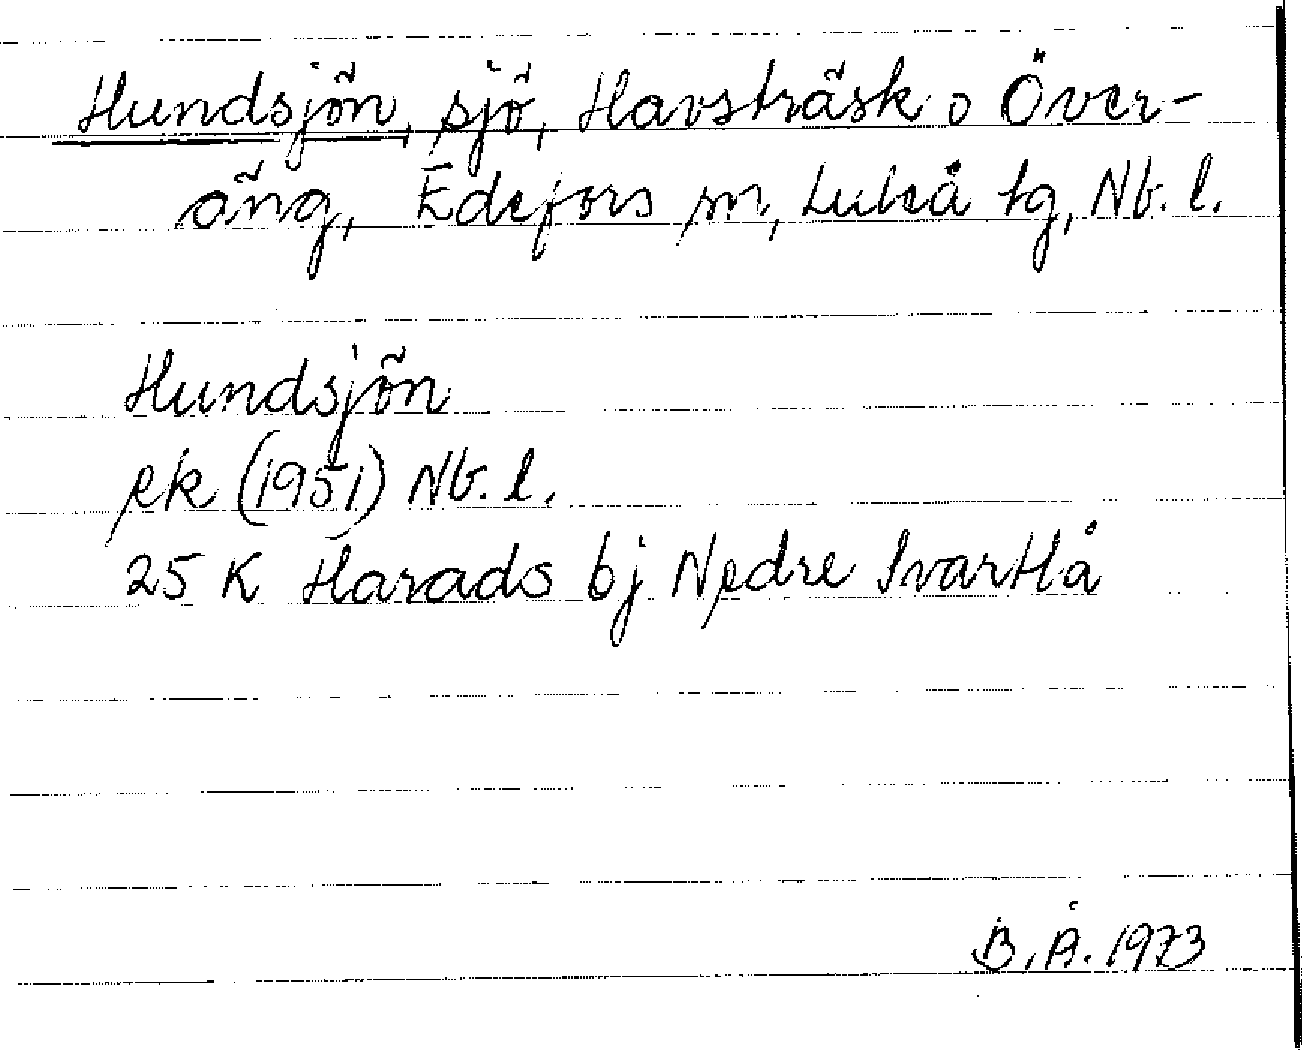 Hundsjön, sjö, Havsträsk o Över-
äng, Edefors sn, Luleå tg, Nb. l.
Hundsjön
rk (1951) Nb. l.
25 K Harads bj Nedre Svartlå
B. Å. 1973